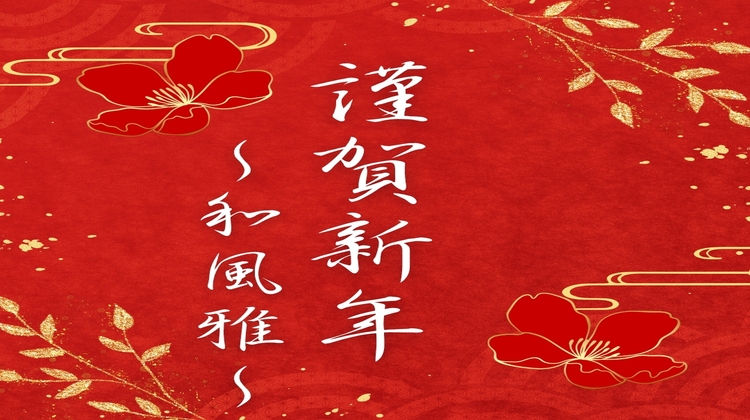 謹賀新年
~和風雅~